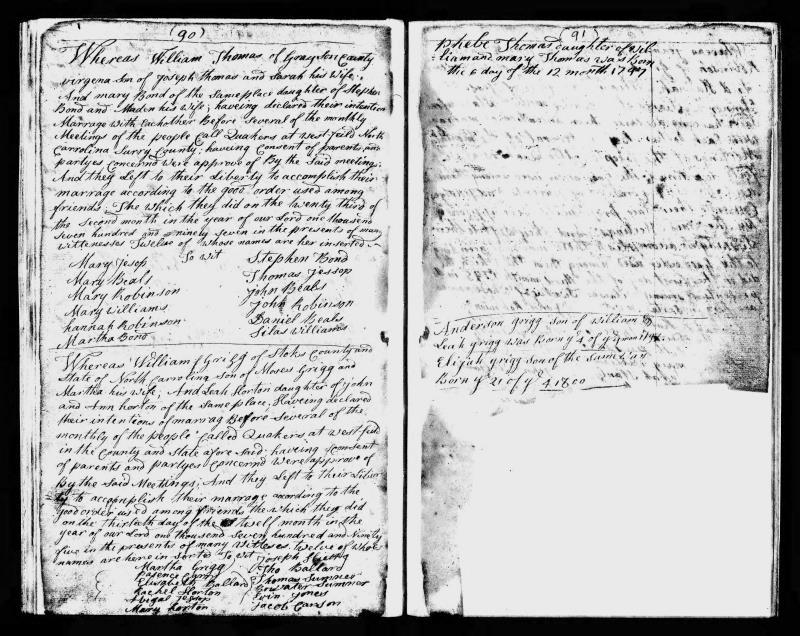 (90)
Whereas William Thomas of Grayson County
virgena Son of Joseph Thomas and Sarah his Wife;
And mary Bond of the Same place daughter of Stephen
Bond and his Wife; haveing declared their intention
Marrage with Eachother Before Several of the monthly
Meetings of the people Call Quakers at West feild North
Carrolina Surry County; haveing Consent of parents and
partyes Concernd Were approve of By the Said meeting;
And they Left to their Liberty to accomplish their
marrage according to the good order used among
friends; The Which they did on the twenty third of
the Second month in the year of our Lord one thousand
Seven hundred and ninety Seven in the presents of many
Wittenesses Twelve of Whose names are her inserted
To Wit
Mary Jesop Stephen Bond
Mary Beals Thomas Jessop
Mary Robinson John Beals
Mary Williams John Robinson
hannah Robinson Daniel Beals
Martha Bond Silas Williams
Whereas William Grigg of Stoks County and
State of North Carrolina Son of Moses Grigg and
Martha his Wife; And Leah Horton daughter of John
and Ann horton of the Same place; Haveing declared
their intentions of marrag Before Several of the
monthly of the people Called Quakers at West feild
in the County and State afore Said; haveing Consent
of parents and partyes Concernd Were approve of
By the Said Meetings; And they Left to their Liber
ty to accomplish their marrage acording to the
good order used among friends the which they did
on the thirtieth day of the month in the
year of our Lord one thousand Seven hundred and Ninity
five in the presents of many Twelve of Whose
names are here in Sorted To Wit
Martha Grigg Joseph
Tho Ballard
Elisabeth Ballard Thomas Sumner
Rachel Horton Sumner
Abigal Jessop Jones
Mary Horton Jacob Carson
(91)
Phebe Thomas daughter of Wil
liam and mary Thomas Was Born
the 6 day of the 12 month 1797
Anderson Grigg Son of William &
Leah Grigg Was Born ye 4 of ye
Elijah Grigg Son of the Same Was
Born ye 21 of ye 4 1800